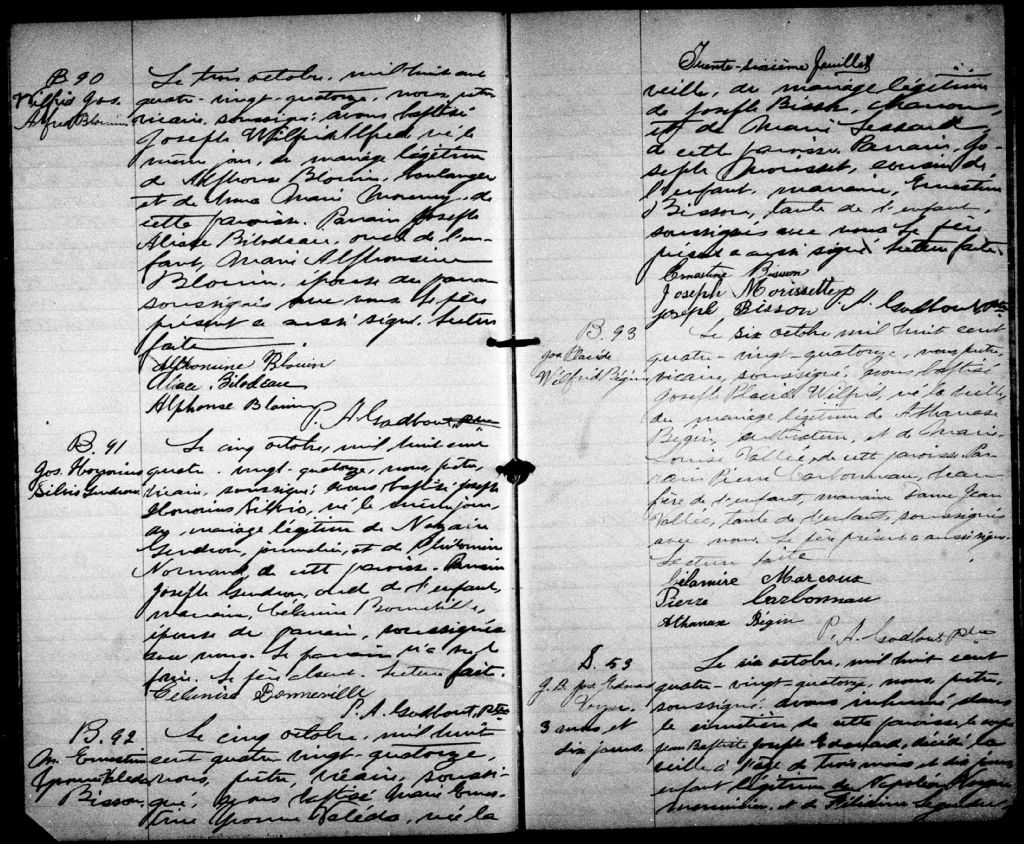 B. 90
Wilfrid Jos.
Alfred Blouin
Le trois octobre, mil huit cent
quatre-vingt-quatorze, nous, prêtre
vicaire, soussigné, avons baptisé
Joseph Wilfrid Alfred, né le
même jour, du mariage légitime
de Alphonse Blouin, boulanger
et de Anna Marie de
cette paroisse. Parrain Joseph
Alisée Bilodeau, oncle de l'en-
fant, Marie Alphonsine
Blouin, épouse du parrain
soussignés avec nous. Le père
présent a aussi signé. Lecture
faite
Alphonsine Blouin
Alisée Bilodeau
Alphonse Blouin
P. A. Godbout, ptre
B. 91
Jos. Honorius
Silvio Gendron
Le cinq octobre, mil huit cent
quatre-vingt-quatorze, nous, prêtre,
vicaire, soussigné, avons baptisé Joseph
Honorius Silvio, né le même jour,
du mariage légitime de Nazaire
Gendron, journalier, et de Philomène
Normand, de cette paroisse. Parrain
Joseph Gendron, oncle de l'enfant,
marraine, Célanire Bonneville,
épouse du parrain, soussignée
avec nous. Le parrain n'a su
Le père absent. Lecture faite.
Célanise Bonneville
P. A. Godbout, ptre
B. 92
M. Ernestine
Yvonne Valéda
Bisson
Le cinq octobre, mil huit
cent quatre-vingt-quatorze,
nous, prêtre, vicaire, soussi-
gné, avons baptisé Marie Ernes-
tine Yvonne Valéda, née la
Trente-sixième feuillet
veille, du mariage légitime
de Joseph Bisson, charron
et de Marie Lessard
de cette paroisse. Parrain, Jo-
seph Morisset, cousin de
l'enfant, marraine, Ernestine
Bisson, tante de l'enfant,
soussignés avec nous. Le père
présent a aussi signé. Lecture faite.
Ernestine Bisson
Joseph Morissette
Joseph Bisson P. A. Godbout, ptre
B. 93
Jos. Placide
Wilfrid Bégin
Le six octobre mil huit cent
quatre-vingt-quatorze, nous, prêtre,
vicaire, soussigné, avons baptisé
Joseph Placide Wilfrid, né la veille
du mariage légitime de Athanase
Bégin, cultivateur, et de Marie-
Louise Vallée, de cette paroisse. Par-
rain Pierre Carbonneau,
père de l'enfant, marraine Dame Jean
Vallée, tante de l'enfant, soussignés
avec nous. Le père présent a aussi signé.
Lecture faite
Célanire Marcoux
Pierre Carbonneau
Athanase Bégin
P. A. Godbout, ptre
S. 53
J. B. Jos. Edouard
Voyer
3 mois et
dix jours.
Le six octobre, mil huit cent
quatre-vingt-quatorze, nous, prêtre,
soussigné, avons inhumé dans
le cimetière de cette paroisse, le corps
Jean Baptiste Joseph Edouard, décédé la
veille à l'âge de trois mois et dix jours
enfant légitime de Napoléon Voyer
et de